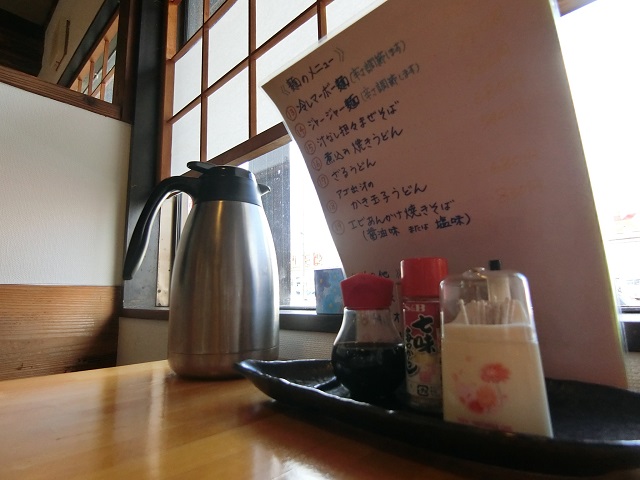 《麺のメニュー》
冷しマーボー麺(辛さ調節できます)
ジャージャー麺(辛さ調節します)
汁なし担々まぜそば
煮込の焼きうどん
ざるうどん
アゴ出汁の
かき玉子うどん
エビあんかけ焼きそば
(醤油味 または 塩味)
S&B
七味